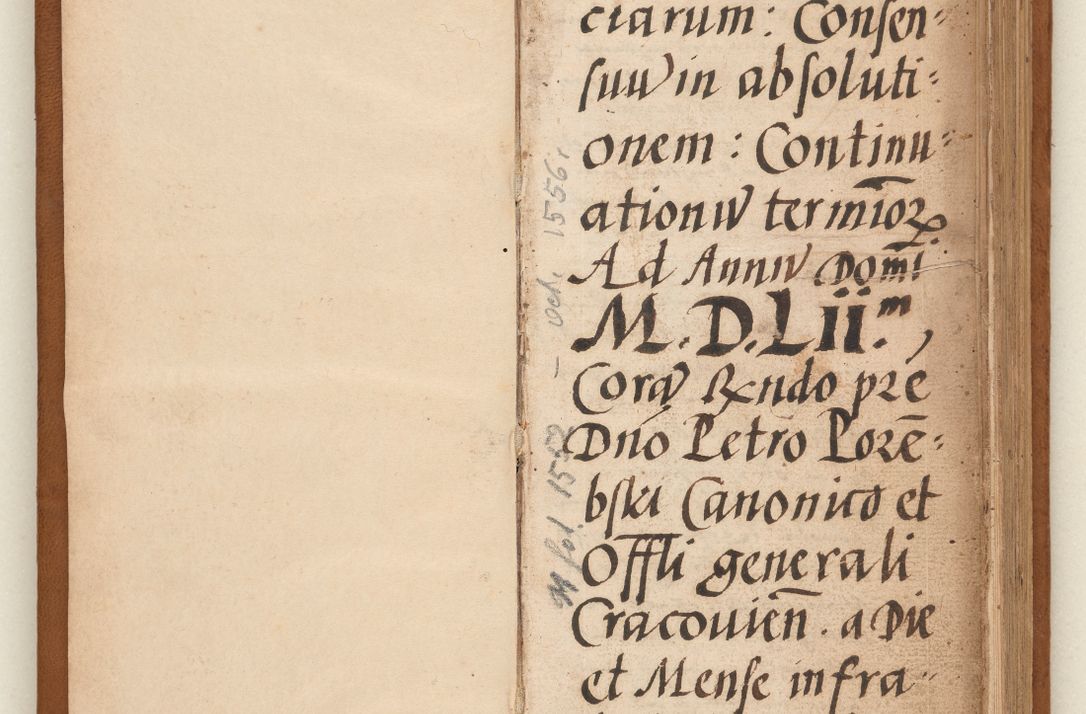 ciarum: Consen=
suu in absoluti=
onem: Continu=
ationu termior
Ad Annu Domi
M.D.Lii.m,
Cora Rndo pre
Dno Petro Pore=
bski Canonico et
Offli generali
Cracouien. a Die
et Mense infra=
II poł. 1552 – och. 1556 r.